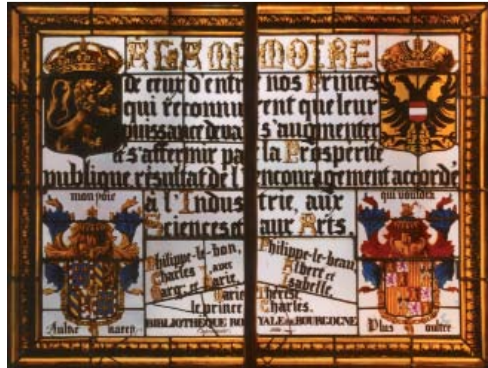 A LA MEMOIRE
de ceux d'entre nos Princes
qui reconnurent que leur
puissance devait s'augmenter
et s'affermir par la Prosperité
publique résultat de l'encouragement accordé
à l'Industrie, aux
Sciences et aux Arts,
mon joie
qui vouldra
Philippe-le-bon,
Charles avec
Marg. et Marie,
Philippe-le-beau,
Albert et
Isabelle,
Marie Thérèse,
le prince Charles.
BIBLIOTHEQUE ROYALE de BOURGOGNE
Aultre naray
Plus oultre